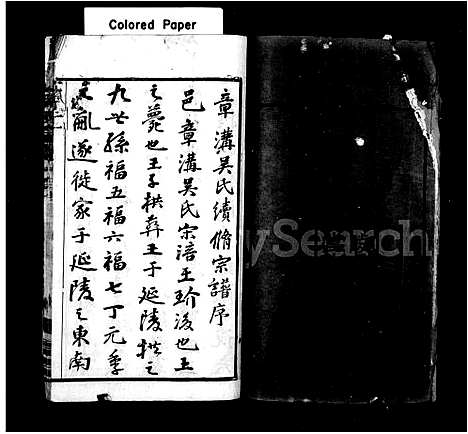 Colored Paper
章溝吳氏續脩宗譜序
邑章溝吳氏宗涪王玠後也王
之薨也王子拱葬王于延陵拱之
九世孫福五福六福七丁元季
亂遂徙家于延陵之東南
MySearch